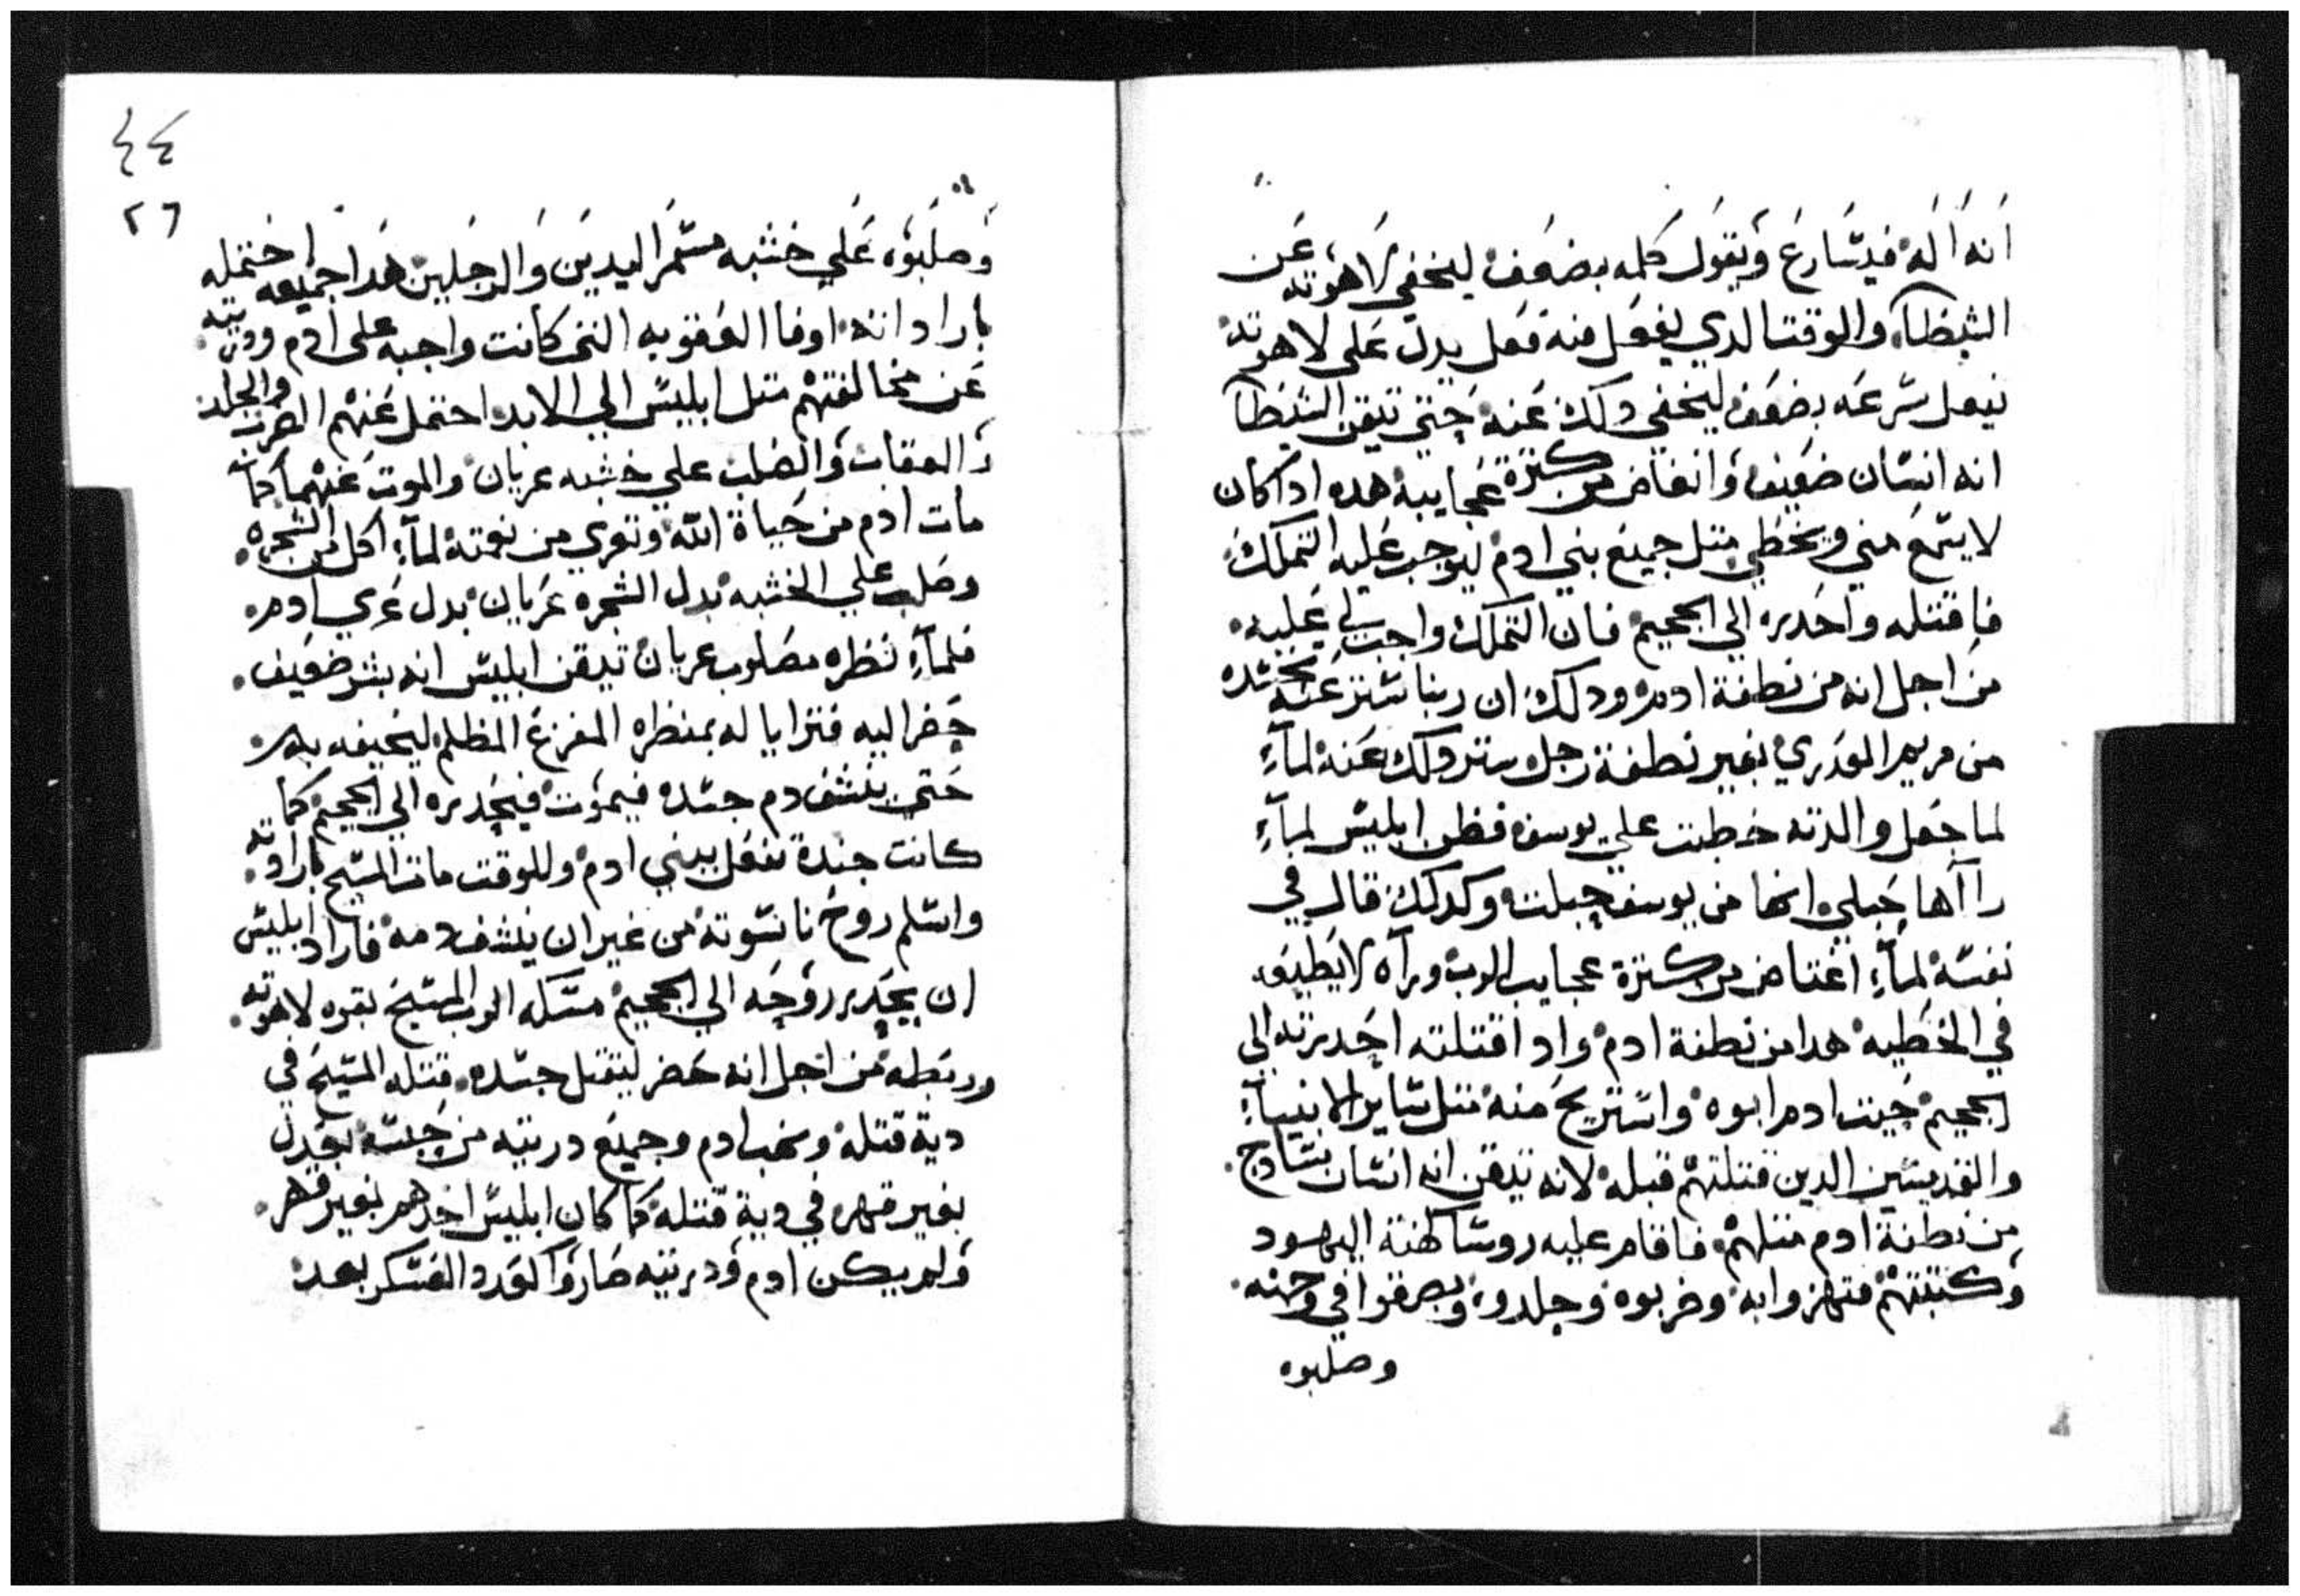 انه اله فيسارع ويقول كلمه بضعف ليخفي لاهوته عن
الشيطان والوقت الدي يفعل فيه فعل يدل على لاهوته
يفعل سرعه بضعف ليخفي دلك عنه حتي تيقن الشيطان
انه انسان ضعيف وانغاض من كترة عجايبه هده ادا كان
لا يسمع مني ويخطي متل جميع بني ادم ليوجب عليه التملك
فاقتله واحدره الي الجحيم فان التملك واجب لي عليه
من اجل انه من نطفة ادم ودلك ان ربنا ستر عنه تجسده
من مريم العدري بغير نطفة رجل ستر دلك عنه لمآء
لما جعل والدته خطبت علي يوسف فظن ابليس لمآء
راآها حبلي انها من يوسف حبلت وكدلك قال في
نفسه لمآء اغتاض من كترة عجايب الرب ورآه لا يطيعه
في الخطيه هدا من نطفة ادم وادا قتلته احدرته الي
الجحيم حيت ادم ابوه واستريح منه متل ساير الانبيآء
والقديسين الدين قتلتهم قبله لانه تيقن انه انسان سادج
من نطفة ادم متلهم فاقام عليه روسا كهنة اليهود
وكتبتهم فتهزوا به وضربوه وجلدوه وبصقوا في وجهه
وصلبوه
٤٤
٢٦
وصلبوه علي خشبه مسمر اليدين والرجلين هدا جميعه احتمله
بارادته اوفا العقوبه التي كانت واجبه على ادم ودريته
عن مخالفتهم متل ابليس الي الابد احتمل عنهم الضرب والجلد
والعقاب والصلب علي خشبه عريان والموت عنهم كما
مات ادم من حياة الله وتعري من نعمته لمآء اكل من الشجره
وصلب علي الخشبه بدل الشجره عريان بدل عري ادم
فلمآء نظره مصلوب عريان تيقن ابليس انه بشر ضعيف
حضر اليه فترايا له بمنظره المفزع المظلم ليخيفه به
حتي ينشف دم جسده فيموت فيحدره الي الجحيم كما
كانت جنده تفعل ببني ادم وللوقت مات المسيح بارادته
واسلم روح ناسوته من غير ان ينشف دمه فاراد ابليس
ان يحدر روحه الي الجحيم مسكه الرب المسيح بقوه لاهوته
وربطه من اجل انه حضر ليقتل جسده قتله المسيح في
دية قتله ونهب ادم وجميع دريته من حبسه بعدل
بغير قهره في دية قتله كما كان ابليس اخدهم بغير قهر
ولم يكن ادم ودريته صاروا لعدد العسكر بعد